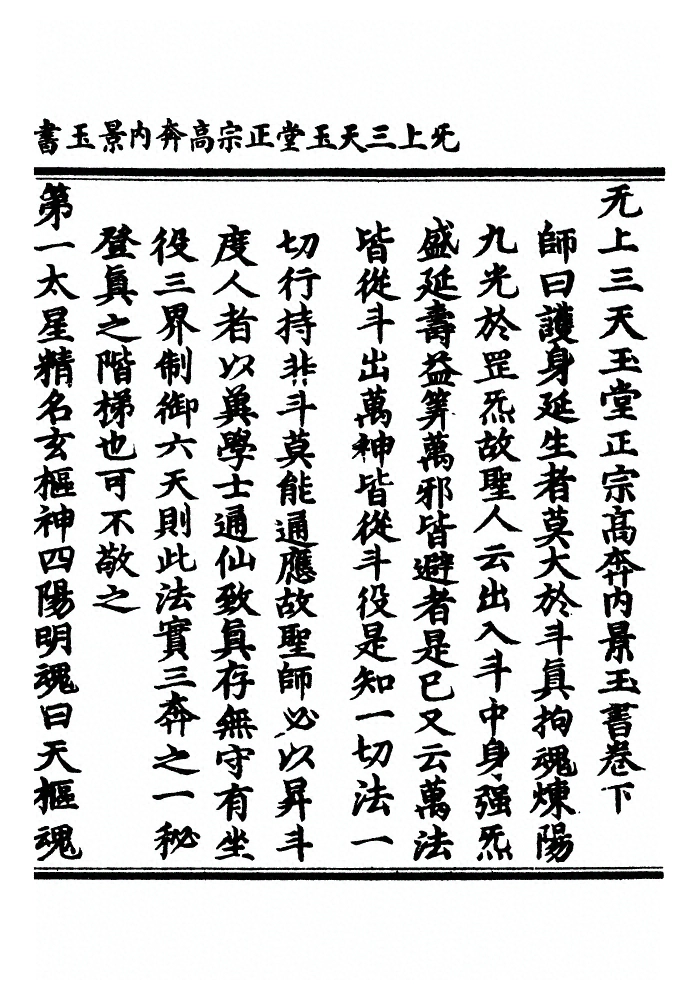 旡上三天玉堂正宗高奔內景玉書
旡上三天玉堂正宗高奔內景玉書卷下
師曰護身延生者莫大於斗真拘魂煉陽
九光於罡炁故聖人云出入斗中身强炁
盛延壽益筭萬邪皆避者是已又云萬法
皆從斗出萬神皆從斗役是知一切法一
切行持非斗莫能通應故聖師必以昇斗
度人者以冀學士通仙致真存無守有坐
役三界制御六天則此法實三奔之一秘
登真之階梯也可不敬之
第一太星精名玄樞神四陽明魂曰天樞魂